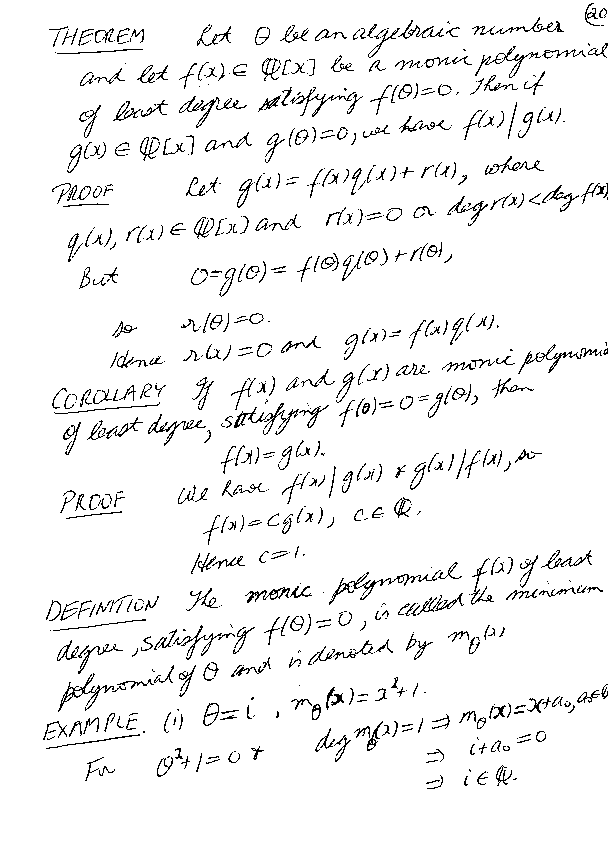 20
THEOREM Let θ be an algebraic number
and let f(x) ∈ Q[x] be a monic polynomial
of least degree satisfying f(θ)=0. Then if
g(x) ∈ Q[x] and g(θ)=0, we have f(x) | g(x).
PROOF Let g(x) = f(x)q(x) + r(x), where
q(x), r(x) ∈ Q[x] and r(x)=0 or deg r(x) < deg f(x)
But 0=g(θ) = f(θ)q(θ) + r(θ),
so r(θ)=0.
Hence r(x)=0 and g(x)= f(x)q(x).
COROLLARY If f(x) and g(x) are monic polynomia
of least degree, satisfying f(θ)=0=g(θ), then
f(x)=g(x).
PROOF We have f(x) | g(x) & g(x) | f(x), so
f(x)=cg(x), c ∈ Q.
Hence c=1.
DEFINITION The monic polynomial f(x) of least
degree, satisfying f(θ)=0, is called the minimum
polynomial of θ and is denoted by m_θ(x)
EXAMPLE. (i) θ=i, m_θ(x)=x²+1.
For θ²+1=0 & deg m_θ(x)=1 ⇒ m_θ(x)=x+a₀, a₀∈Q
⇒ i+a₀=0
⇒ i ∈ Q.